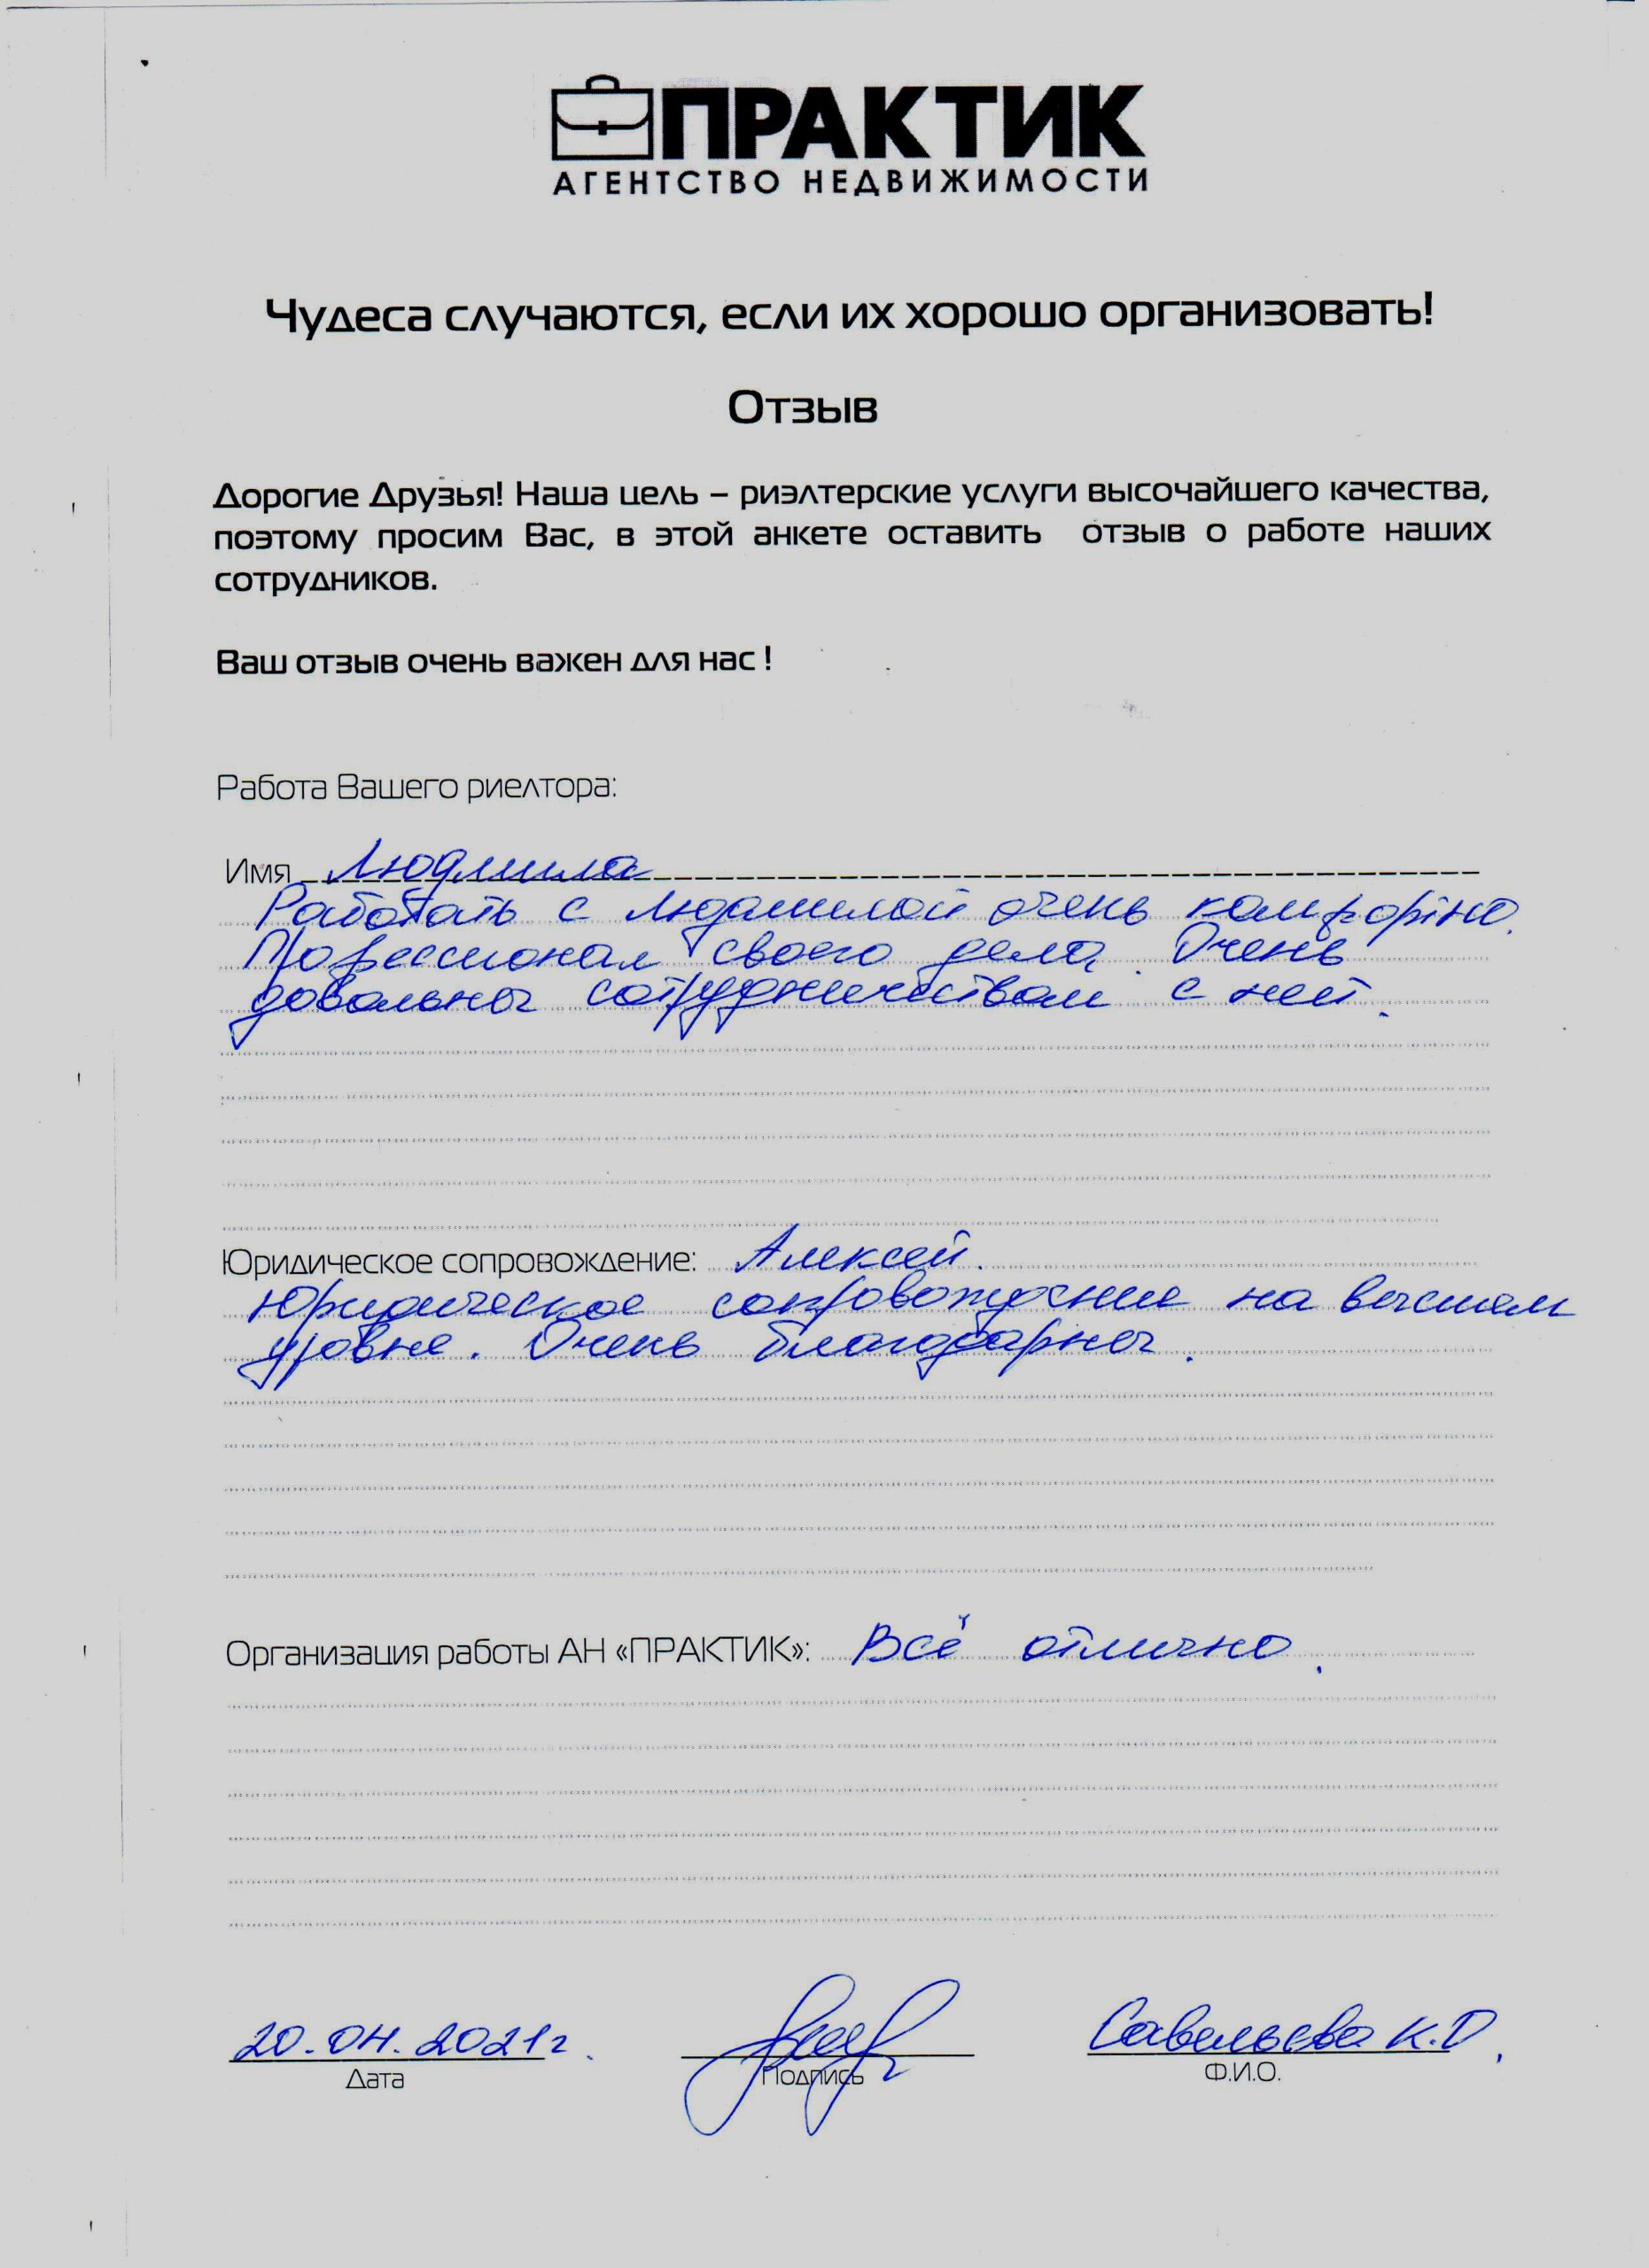 ПРАКТИК
АГЕНТСТВО НЕДВИЖИМОСТИ
Чудеса случаются, если их хорошо организовать!
Отзыв
Дорогие Друзья! Наша цель – риэлтерские услуги высочайшего качества,
поэтому просим Вас, в этой анкете оставить отзыв о работе наших
сотрудников.
Ваш отзыв очень важен для нас !
Работа Вашего риелтора:
Имя Людмила
Работать с Людмилой очень комфортно.
Профессионал своего дела. Очень
довольны сотрудничеством с ней.
Юридическое сопровождение: Алексей.
Юридическое сопровождение на высшем
уровне. Очень благодарны.
Организация работы АН «ПРАКТИК»: Всё отлично.
20.04.2021г. Савельева К.О.
Дата Подпись Ф.И.О.